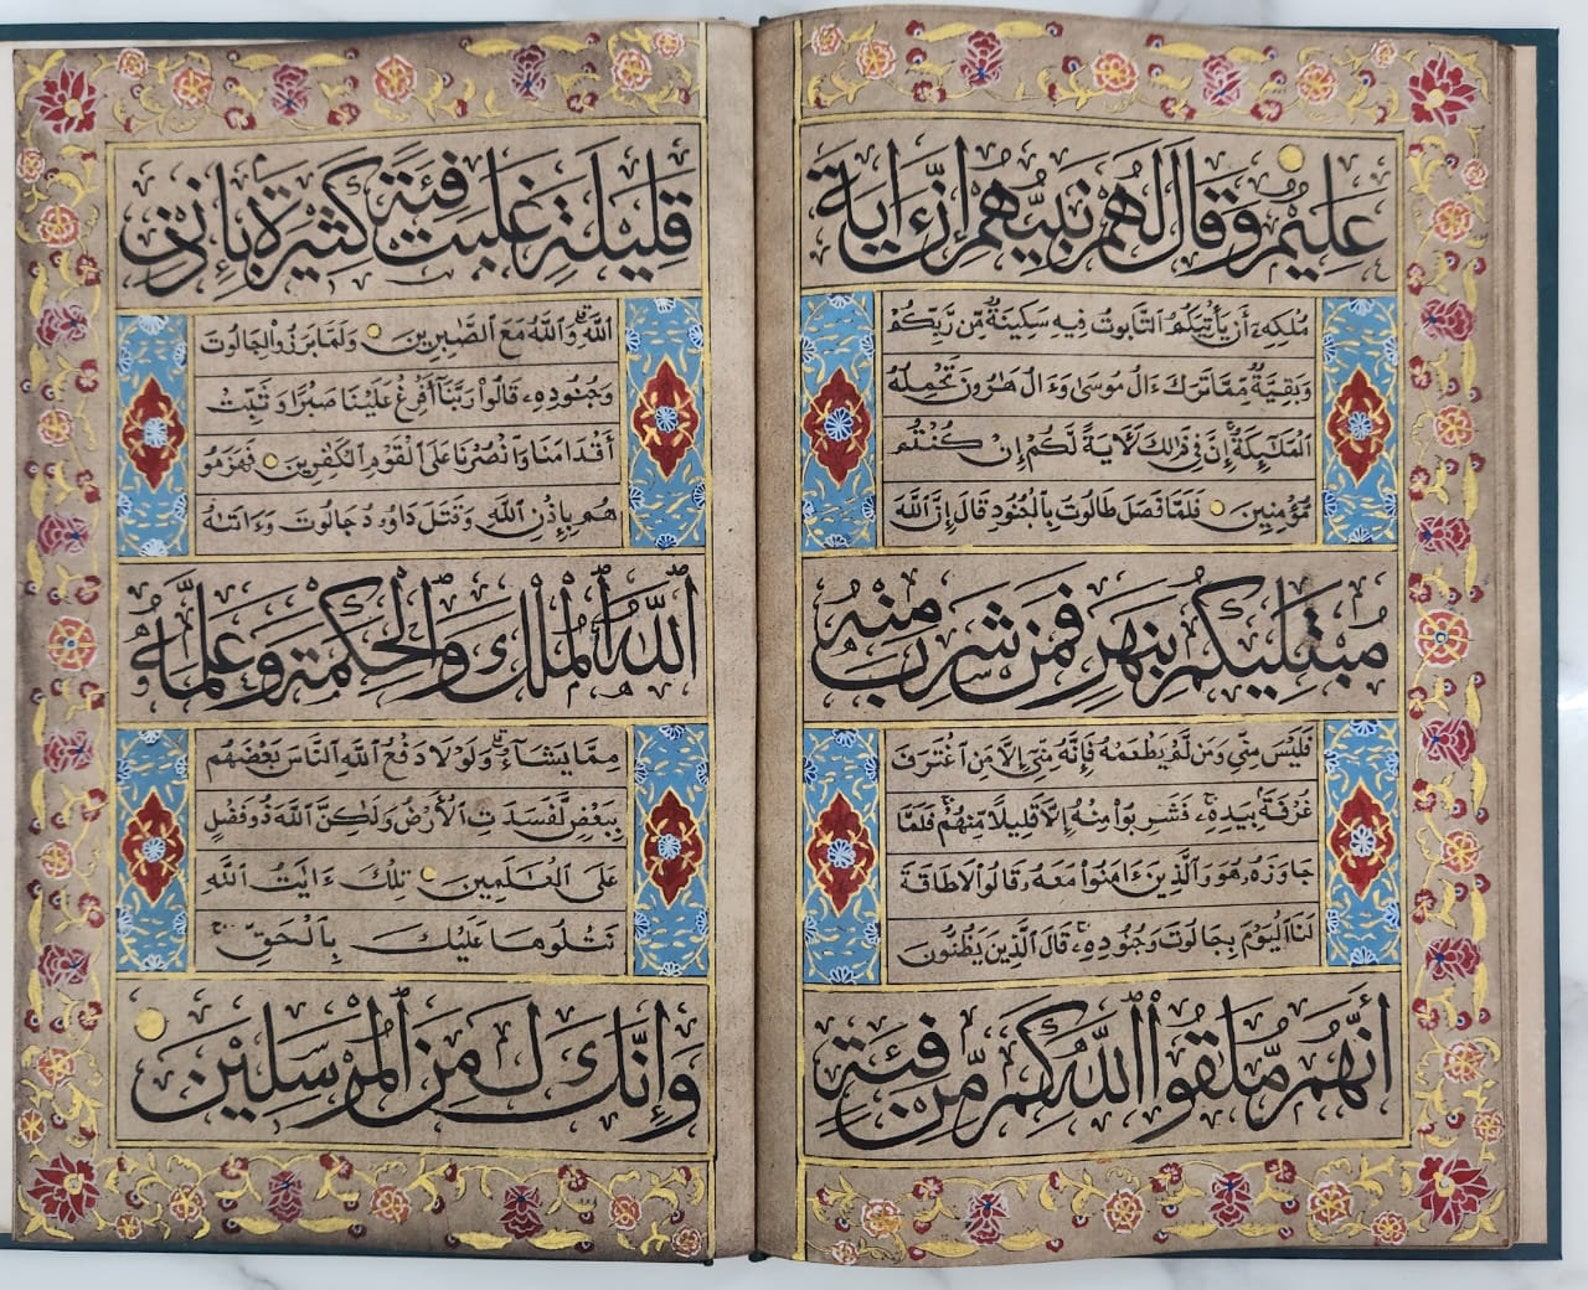 عَلِيمٌ وَقَالَ لَهُمْ نَبِيُّهُمْ إِنَّ ءَايَةَ
مُلْكِهِۦٓ أَن يَأْتِيَكُمُ ٱلتَّابُوتُ فِيهِ سَكِينَةٌ مِّن رَّبِّكُمْ
وَبَقِيَّةٌ مِّمَّا تَرَكَ ءَالُ مُوسَىٰ وَءَالُ هَٰرُونَ تَحْمِلُهُ
ٱلْمَلَٰٓئِكَةُ إِنَّ فِي ذَٰلِكَ لَأَيَةً لَّكُمْ إِن كُنْتُم
مُّؤْمِنِينَ فَلَمَّا فَصَلَ طَالُوتُ بِٱلْجُنُودِ قَالَ إِنَّ ٱللَّهَ
مُبْتَلِيكُم بِنَهَرٍ فَمَن شَرِبَ مِنْهُ
فَلَيْسَ مِنِّي وَمَن لَّمْ يَطْعَمْهُ فَإِنَّهُ مِنِّيٓ إِلَّا مَنِ ٱغْتَرَفَ
غُرْفَةً بِيَدِهِۦ فَشَرِبُوا۟ مِنْهُ إِلَّا قَلِيلًا مِّنْهُمْ فَلَمَّا
جَاوَزَهُۥ هُوَ وَٱلَّذِينَ ءَامَنُوا۟ مَعَهُۥ قَالُوا۟ لَا طَاقَةَ
لَنَا ٱلْيَوْمَ بِجَالُوتَ وَجُنُودِهِۦ قَالَ ٱلَّذِينَ يَظُنُّونَ
أَنَّهُم مُّلَٰقُوا۟ ٱللَّهِ كَم مِّن فِئَةٍ
قَلِيلَةٍ غَلَبَتْ فِئَةً كَثِيرَةً بِإِذْنِ
ٱللَّهِ وَٱللَّهُ مَعَ ٱلصَّٰبِرِينَ وَلَمَّا بَرَزُوا۟ لِجَالُوتَ
وَجُنُودِهِۦ قَالُوا۟ رَبَّنَآ أَفْرِغْ عَلَيْنَا صَبْرًا وَثَبِّتْ
أَقْدَامَنَا وَٱنْصُرْنَا عَلَى ٱلْقَوْمِ ٱلْكَٰفِرِينَ فَهَزَمُو
هُم بِإِذْنِ ٱللَّهِ وَقَتَلَ دَاوُۥدُ جَالُوتَ وَءَاتَىٰهُ
ٱللَّهُ ٱلْمُلْكَ وَٱلْحِكْمَةَ وَعَلَّمَهُۥ
مِمَّا يَشَآءُ وَلَوْلَا دَفْعُ ٱللَّهِ ٱلنَّاسَ بَعْضَهُم
بِبَعْضٍ لَّفَسَدَتِ ٱلْأَرْضُ وَلَٰكِنَّ ٱللَّهَ ذُو فَضْلٍ
عَلَى ٱلْعَٰلَمِينَ تِلْكَ ءَايَٰتُ ٱللَّهِ
نَتْلُوهَا عَلَيْكَ بِٱلْحَقِّ
وَإِنَّكَ لَمِنَ ٱلْمُرْسَلِينَ